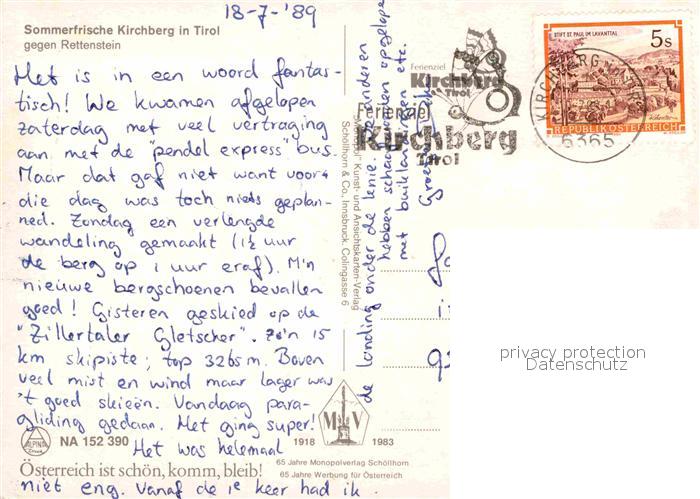 18-7-'89
Sommerfrische Kirchberg in Tirol
gegen Rettenstein
Het is in een woord fantas-
tisch! We kwamen afgelopen
zaterdag met veel vertraging
aan met de "pendel express" bus.
Maar dat gaf niet want voor
die dag was toch niets geplan-
ned. Zondag een verlengde
wandeling gemaakt (1½ uur
de berg op 1 uur eraf). M'n
nieuwe bergschoenen bevallen
goed! Gisteren geskied op de
"Zillertaler Gletscher". Zo'n 15
km skipiste; top 3265 m. Boven
veel mist en wind maar lager was
't goed skieën. Vandaag para-
gliding gedaan. Het ging super!
Het was helemaal
niet eng. Vanaf de 1e keer had ik
de landing onder de knie. anderen
hebben schaafwonden opgelopen
met buiklandingen etc.
ALPINA
NA 152 390
Österreich ist schön, komm, bleib!
M V
1918 1983
65 Jahre Monopolverlag Schöllhorn
65 Jahre Werbung für Österreich
"Monopol" Kunst- und Ansichtskarten-Verlag
Schöllhorn & Co., Innsbruck, Colingasse 6
Ferienziel
Kirchberg
Tirol
Ferienziel
Kirchberg
Tirol
KIRCHBERG
6365
STIFT ST. PAUL IM LAVANTTAL
5 S
REPUBLIK ÖSTERREICH
privacy protection
Datenschutz